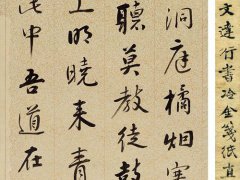 文達行書冷金箋紙直
洞庭橘烟寒
聽莫教徒鼓
上明曉来青
中吾道在